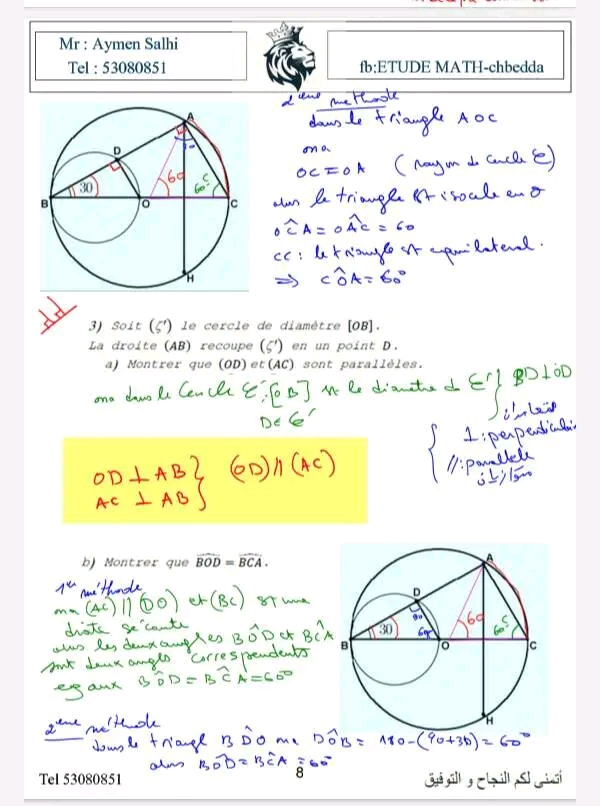 Mr : Aymen Salhi
Tel : 53080851
fb:ETUDE MATH-chbedda
2ème méthode
dans le triangle AOC
on a
OC = OA (rayon du cercle ξ)
alors le triangle est isocèle en O
OĈA = OÂC = 60
cc : le triangle est equilateral.
⇒ CÔA = 60°
A
D
30
60
60°
B
O
C
H
3) Soit (ζ') le cercle de diamètre [OB].
La droite (AB) recoupe (ζ') en un point D.
a) Montrer que (OD) et (AC) sont parallèles.
on a dans le Cercle ξ', [OB] est le diamètre d ξ' } BD ⊥ OD
D ∈ ξ'
متعامدان
⊥ : perpendiculaire
// : parallele
متوازيان
OD ⊥ AB } (OD) // (AC)
AC ⊥ AB
b) Montrer que BOD = BCA.
1ère méthode
on a (AC) // (DO) et (BC) est une
droite sécante
alors les deux angles BÔD et BĈA
sont deux angles correspondents
egaux BÔD = BĈA = 60°
A
D
30
90
60
60
60°
B
O
C
H
2ème méthode
dans le triangl BDO on a DÔB = 180-(90+30) = 60°
alors BÔD = BĈA = 60°
Tel 53080851
8
أتمنى لكم النجاح و التوفيق